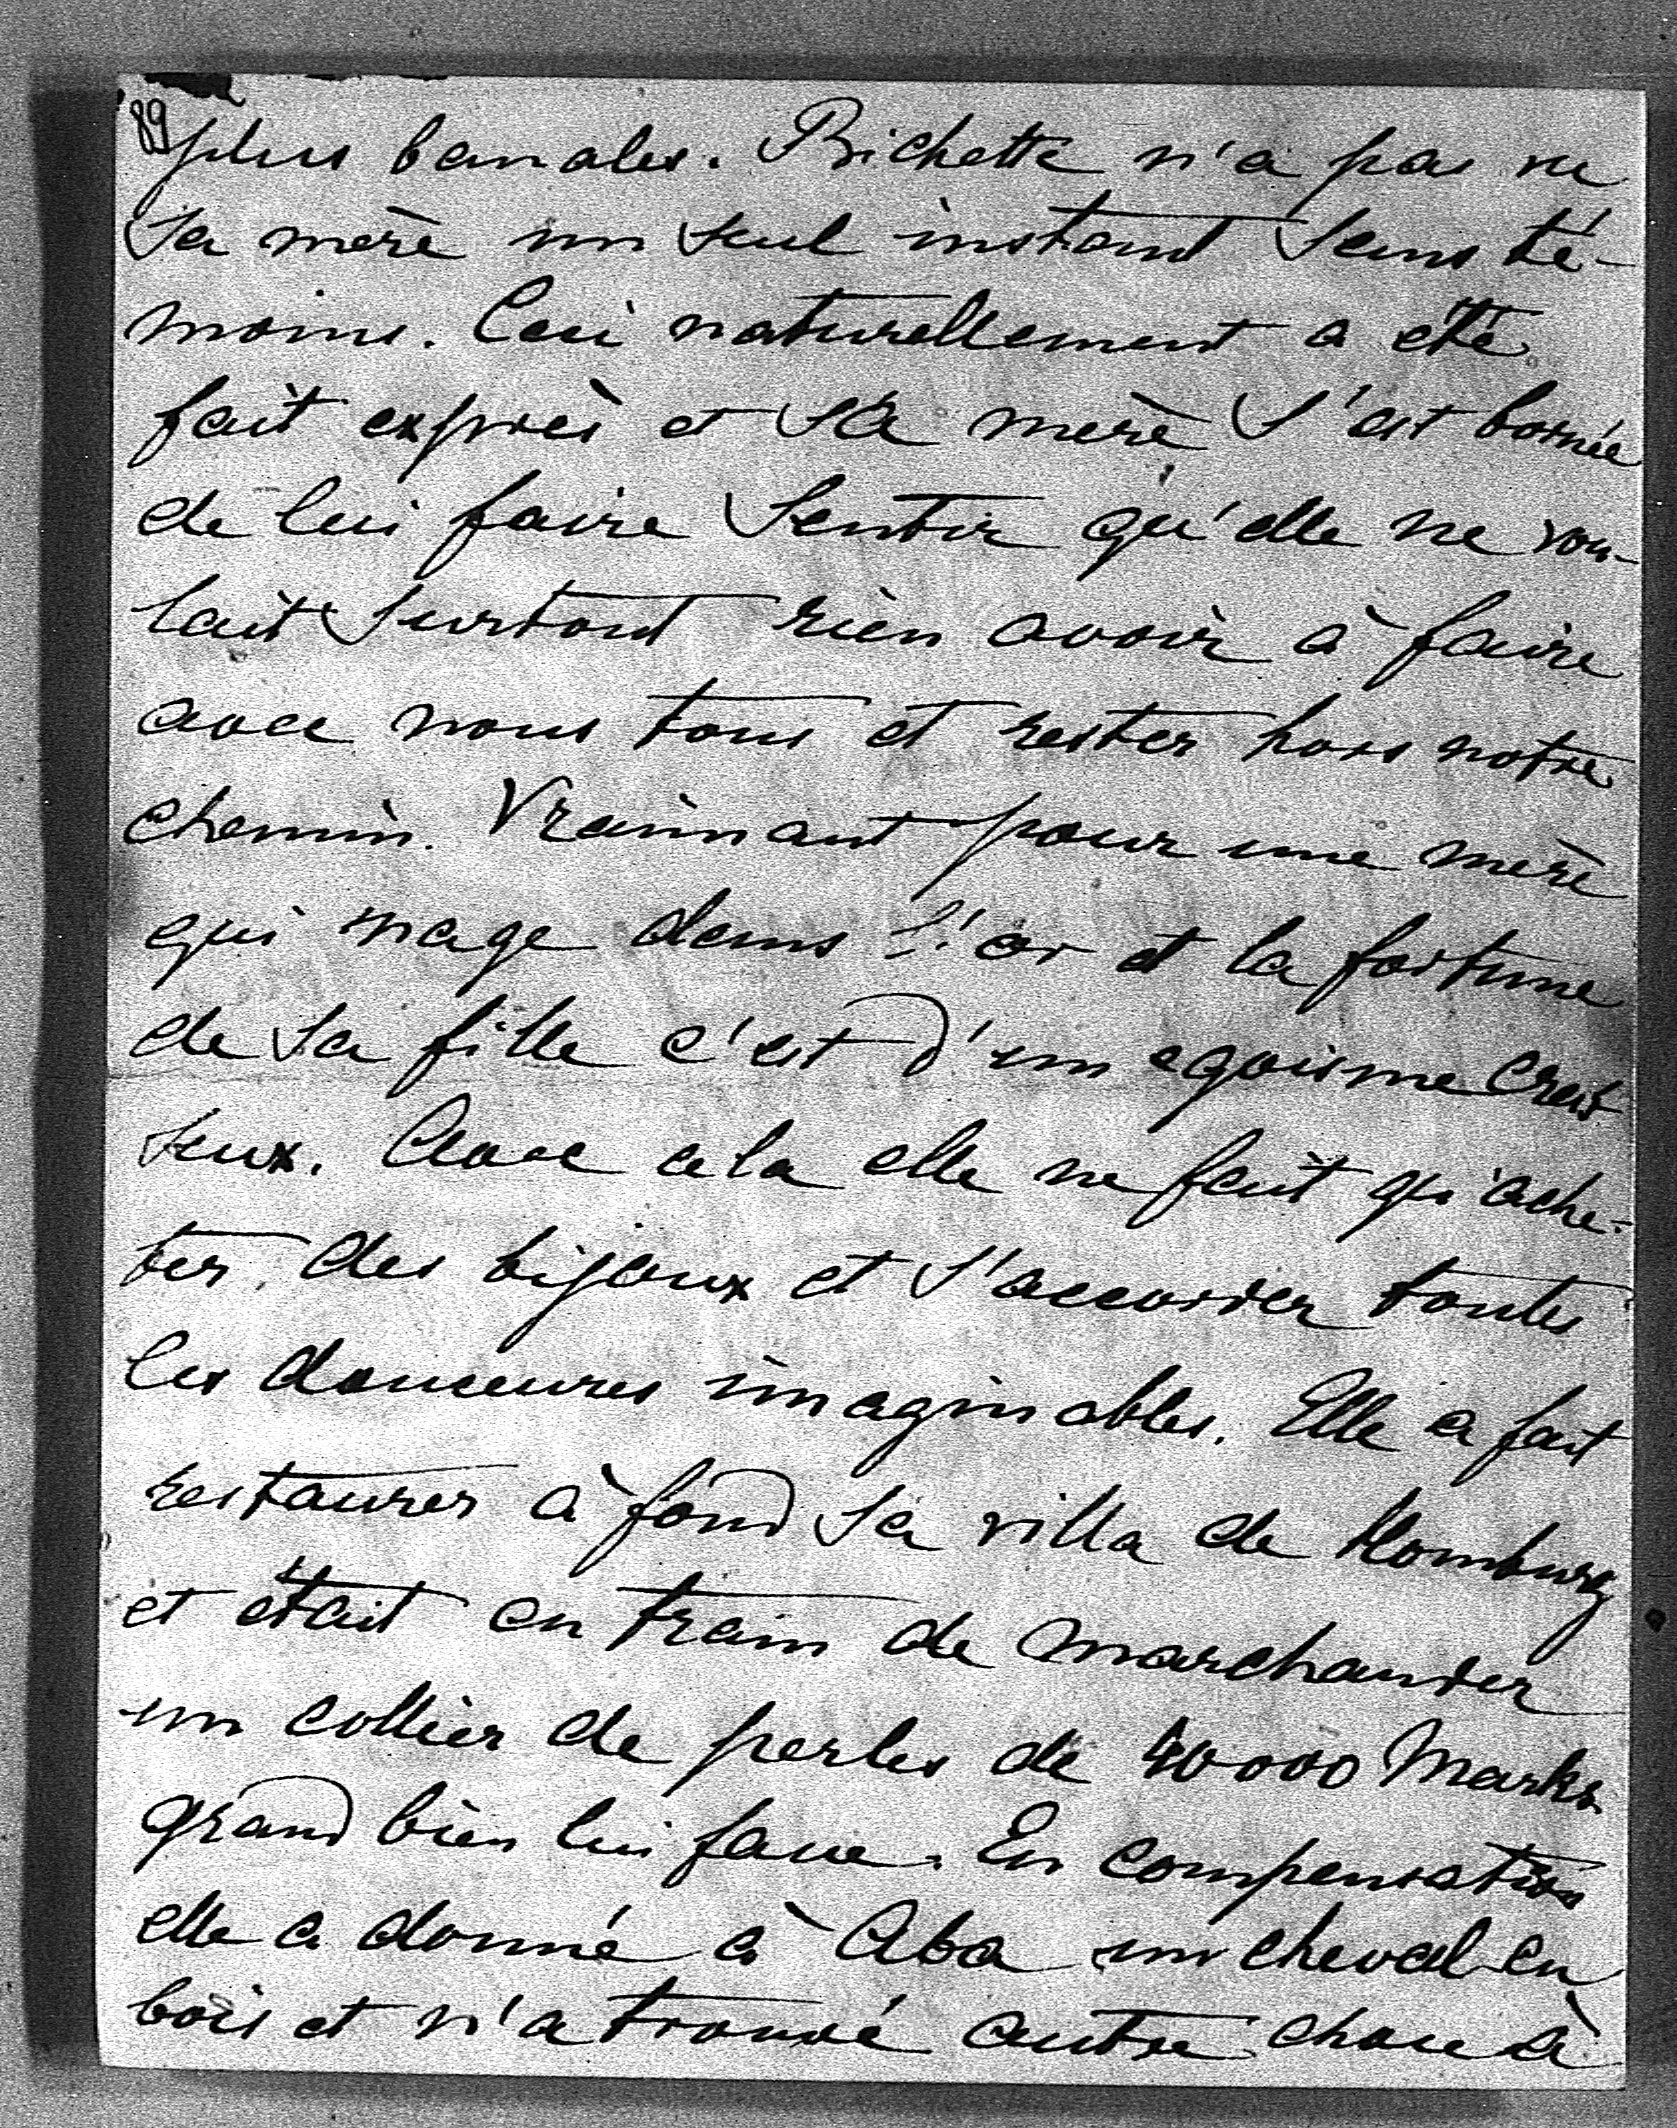 89
plus banales. Bichette n'a pas vu
sa mère un seul instant sans té-
moins. Ceci naturellement a été
fait exprès et sa mère s'est bornée
de lui faire sentir qu'elle ne vou-
lait surtout rien avoir à faire
avec nous tous et rester hors notre
chemin. Vraimant pour une mère
qui nage dans l'or et la fortune
de sa fille c'est d'un egoisme
seux. Avec cela elle ne fait qu'ache-
ter des bijoux et s'accorder toutes
les douceures imaginables. Elle a fait
restaurer à fond sa villa de Homburg
et était en train de marchander
un collier de perles de 40000 Marks
grand bien lui fasse. En compensation
elle a donné à Aba un cheval en
bois et n'a trouvé autre chose à